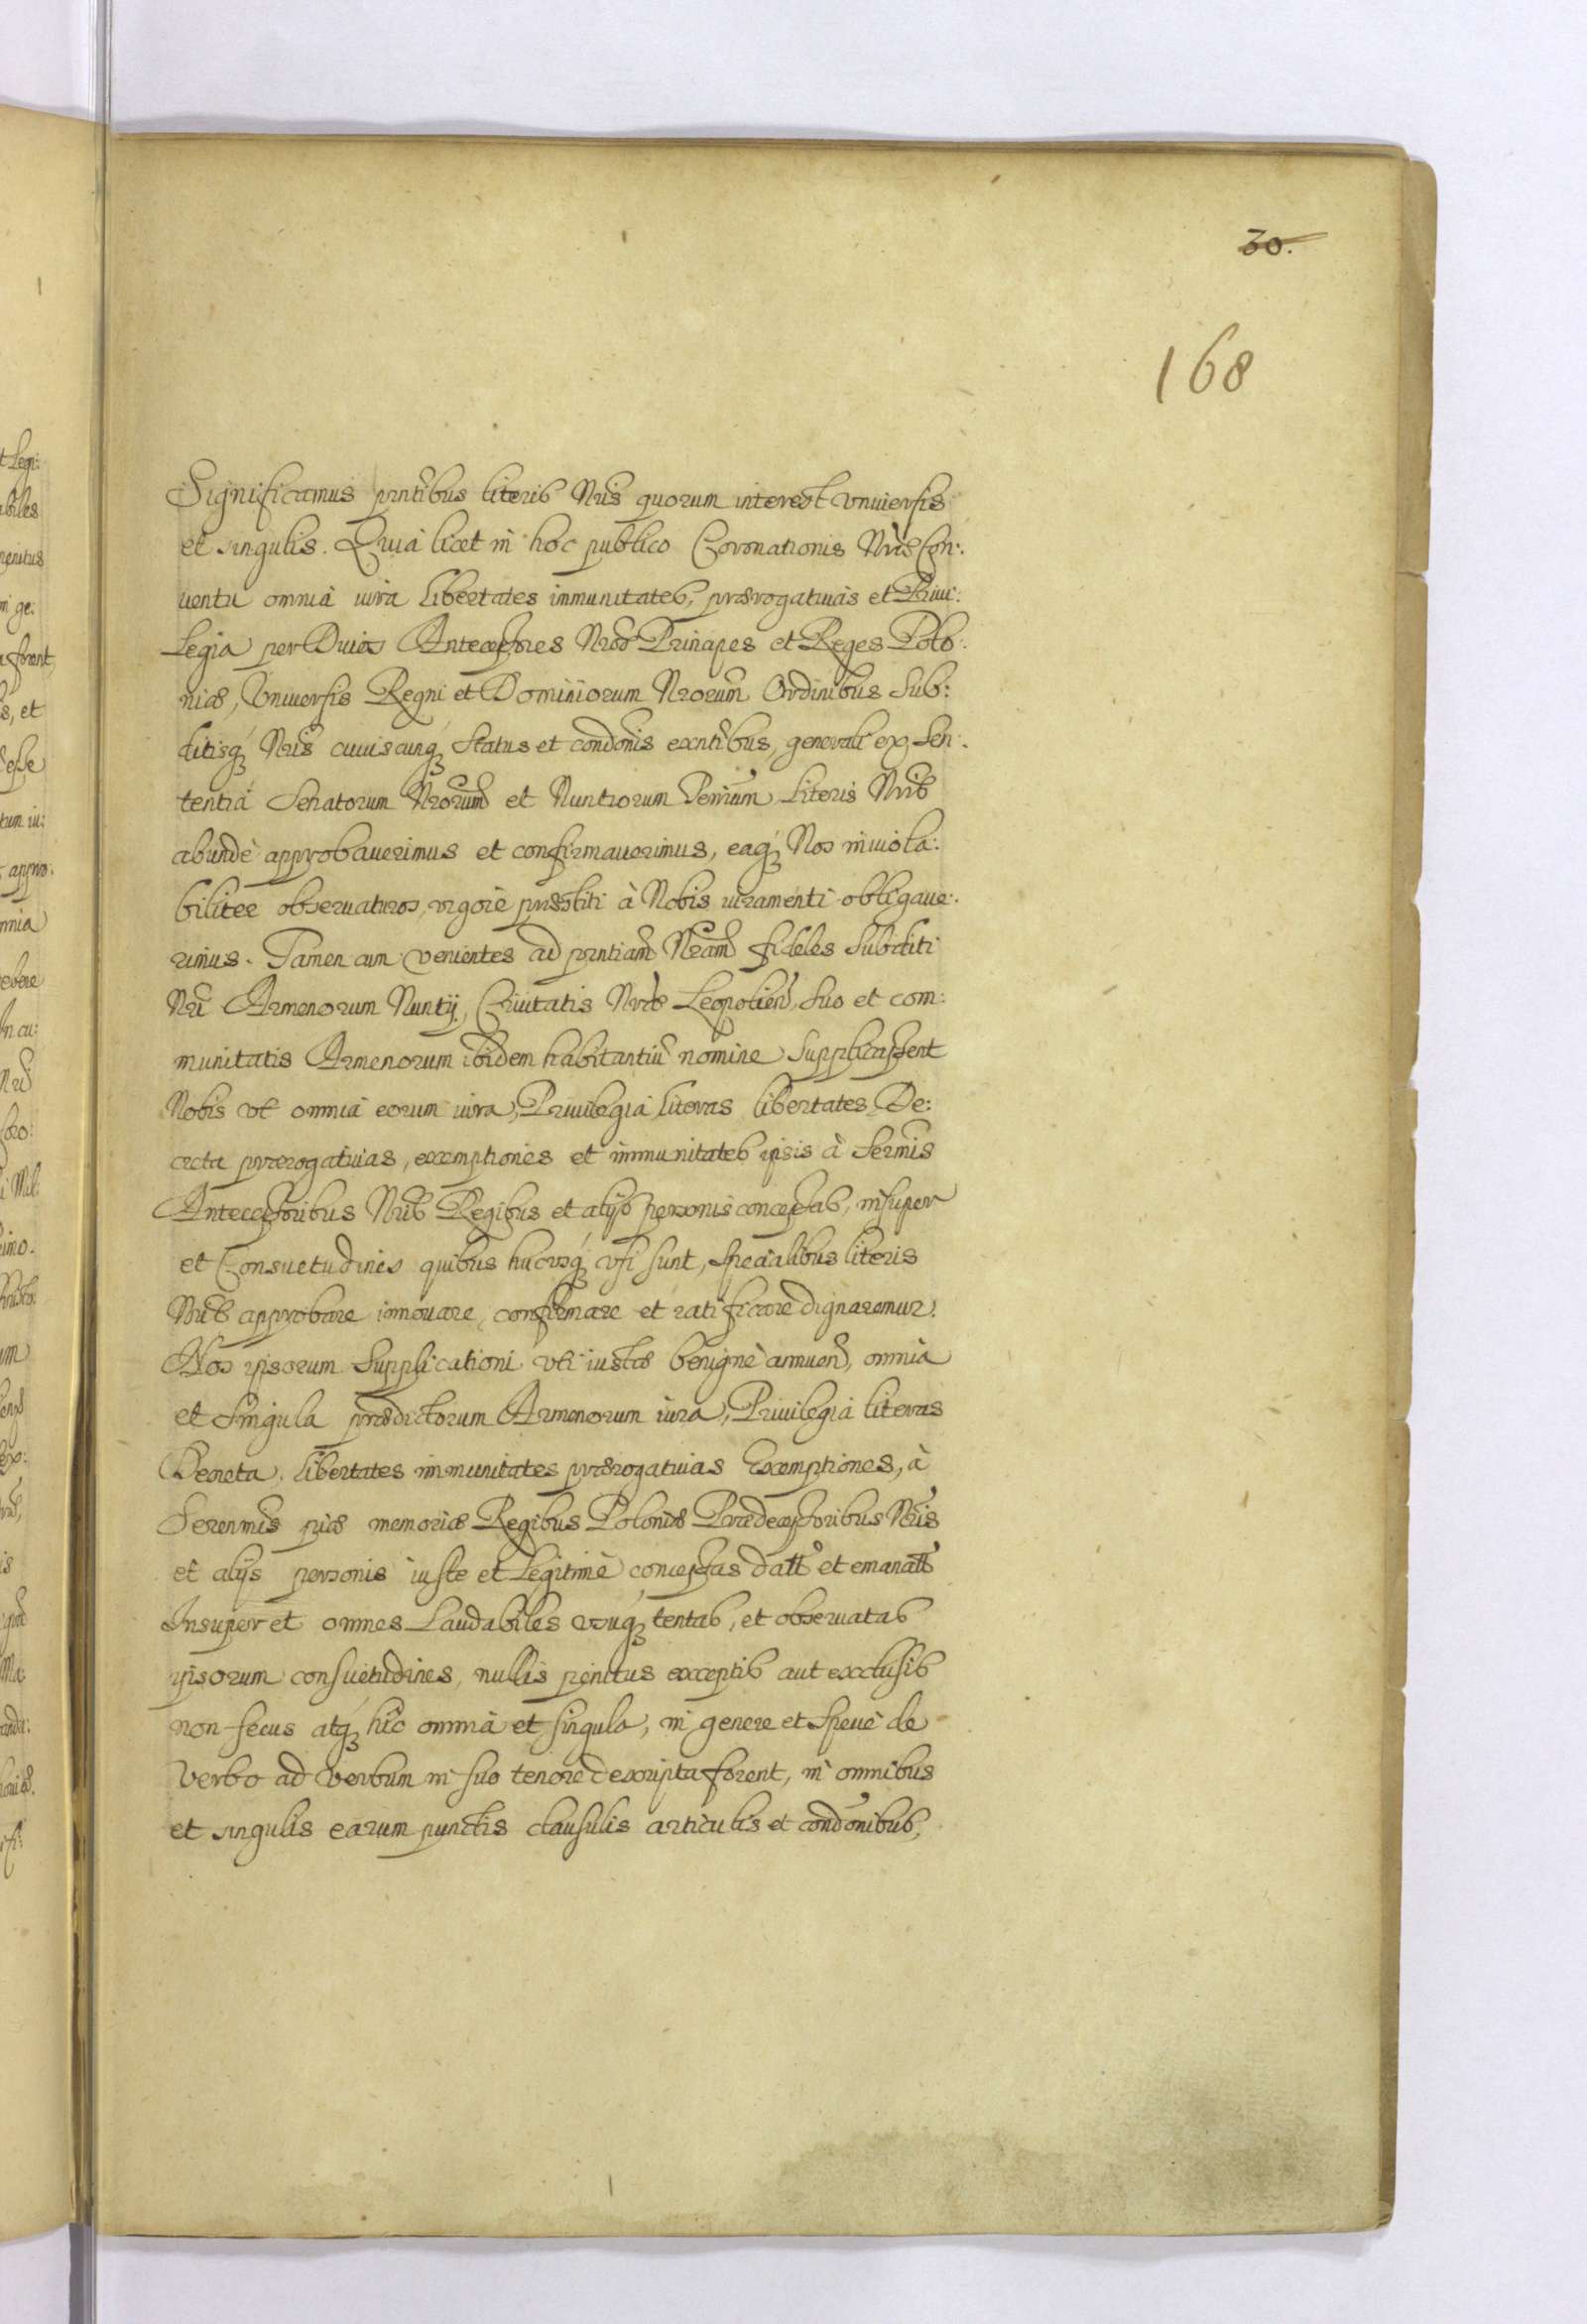 30.
168
Significamus pntibus literis Nris quorum interest vniuersis
et singulis. Quia licet in hoc publico Coronationis Nrae Con:
uentu omnia iura Libertates immunitates, praerogatiuas et Priui:
Legia per Diuos Antecessores Nros Principes et Reges Polo:
niae, Vniuersis Regni et Dominiorum Nrorum Ordinibus Sub:
ditisq; Nris cuiuscunq; Status et condonis exntibus, generali ex Sen:
tentia Senatorum Nrorum et Nuntiorum Terrium Literis Nris
abunde approbauerimus et confirmauerimus, eaq; Nos inuiola:
biliter obseruaturos, vigore praestiti à Nobis iuramenti obligaue:
rimus. Tamen cum venientes ad pntiam Nram fideles Subditi
Nri Armenorum Nuntij, Ciuitatis Nrae Leopolien, Suo et com:
munitatis Armenorum ibidem habitantiu nomine Supplicassent
Nobis vt omnia eorum iura, Priuilegia Literas libertates De:
creta praerogatiuas, exemptiones et immunitates ipsis à Sermis
Antecessoribus Nris Regibus et alijs personis concessas, insuper
et Consuetudines quibus hucusq; vsi sunt, Specialibus literis
Nris approbare innouare, confirmare et ratificare dignaremur.
Nos ipsorum Supplicationi vti iustae benignè annuen, omnia
et Singula praedictorum Armenorum iura, Priuilegia literas
Decreta, libertates immunitates praerogatiuas Exemptiones, à
Serenmis piae memoriae Regibus Poloniae Praedecessoribus Nris
et alijs personis iuste et Legitimè concessas datt et emanatt
Insuper et omnes Laudabiles vsuq; tentas, et obseruatas
ipsorum consuetudines, nullis penitus exceptis aut exclusis
non secus atq; hîc omnia et singula, in genere et Specie de
Verbo ad Verbum in suo tenore descripta forent, in omnibus
et singulis earum punctis clausulis articulis et condonibus,